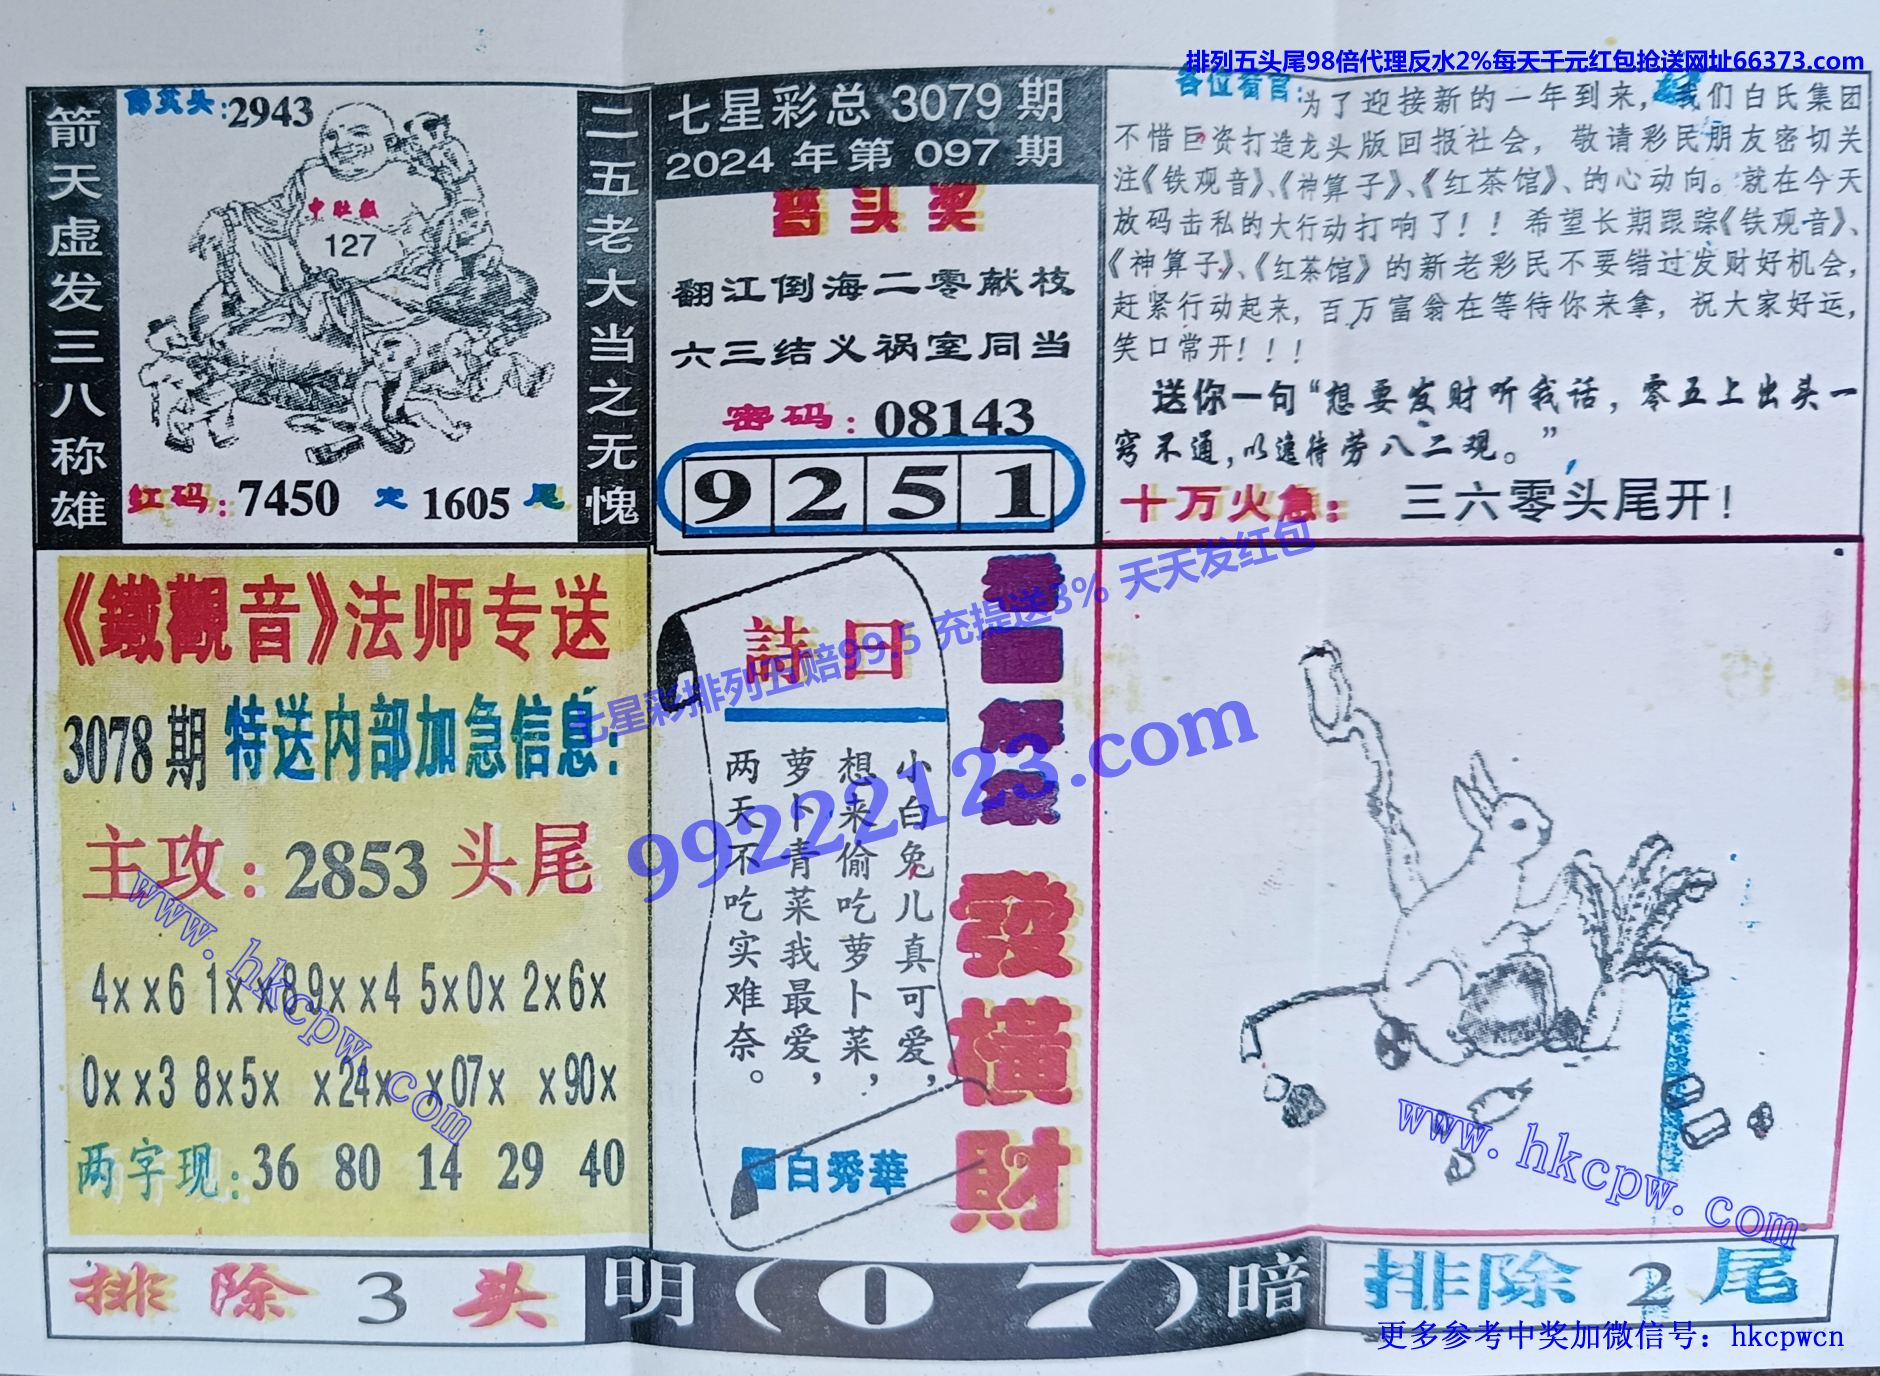 排列五头尾98倍代理反水2%每天千元红包抢送网址66373.com
箭天虚发三八称雄
2943
中肚报
127
红码:7450 定 1605 尾
二五老大当之无愧
七星彩总 3079 期
2024 年第 097 期
翻江倒海二零献枝
六三结义祸室同当
密码:08143
9 2 5 1
各位看官:为了迎接新的一年到来,我们白氏集团
不惜巨资打造龙头版回报社会,敬请彩民朋友密切关
注《铁观音》、《神算子》、《红茶馆》、的心动向。就在今天
放码击私的大行动打响了!! 希望长期跟踪《铁观音》、
《神算子》、《红茶馆》的新老彩民不要错过发财好机会,
赶紧行动起来,百万富翁在等待你来拿,祝大家好运,
笑口常开!!!
送你一句“想要发财听我话,零五上出头一
窍不通,以逸待劳八二观。”
十万火急: 三六零头尾开!
《鐵觀音》法师专送
3078期 特送内部加急信息:
主攻:2853 头尾
4××6 1××8 9××4 5×0× 2×6×
0××3 8×5× ×24× ×07× ×90×
两字现:36 80 14 29 40
詩曰
小白兔儿真可爱,
想来偷吃萝卜菜,
萝卜青菜我最爱,
两天不吃实难奈。
白秀華
發橫財
七星彩排列五赔99.5 充提送3% 天天发红包
99222123.com
www.hkcpw.com
www.hkcpw.com
排除 3 头
明(07)暗
排除 2 尾
更多参考中奖加微信号:hkcpwcn